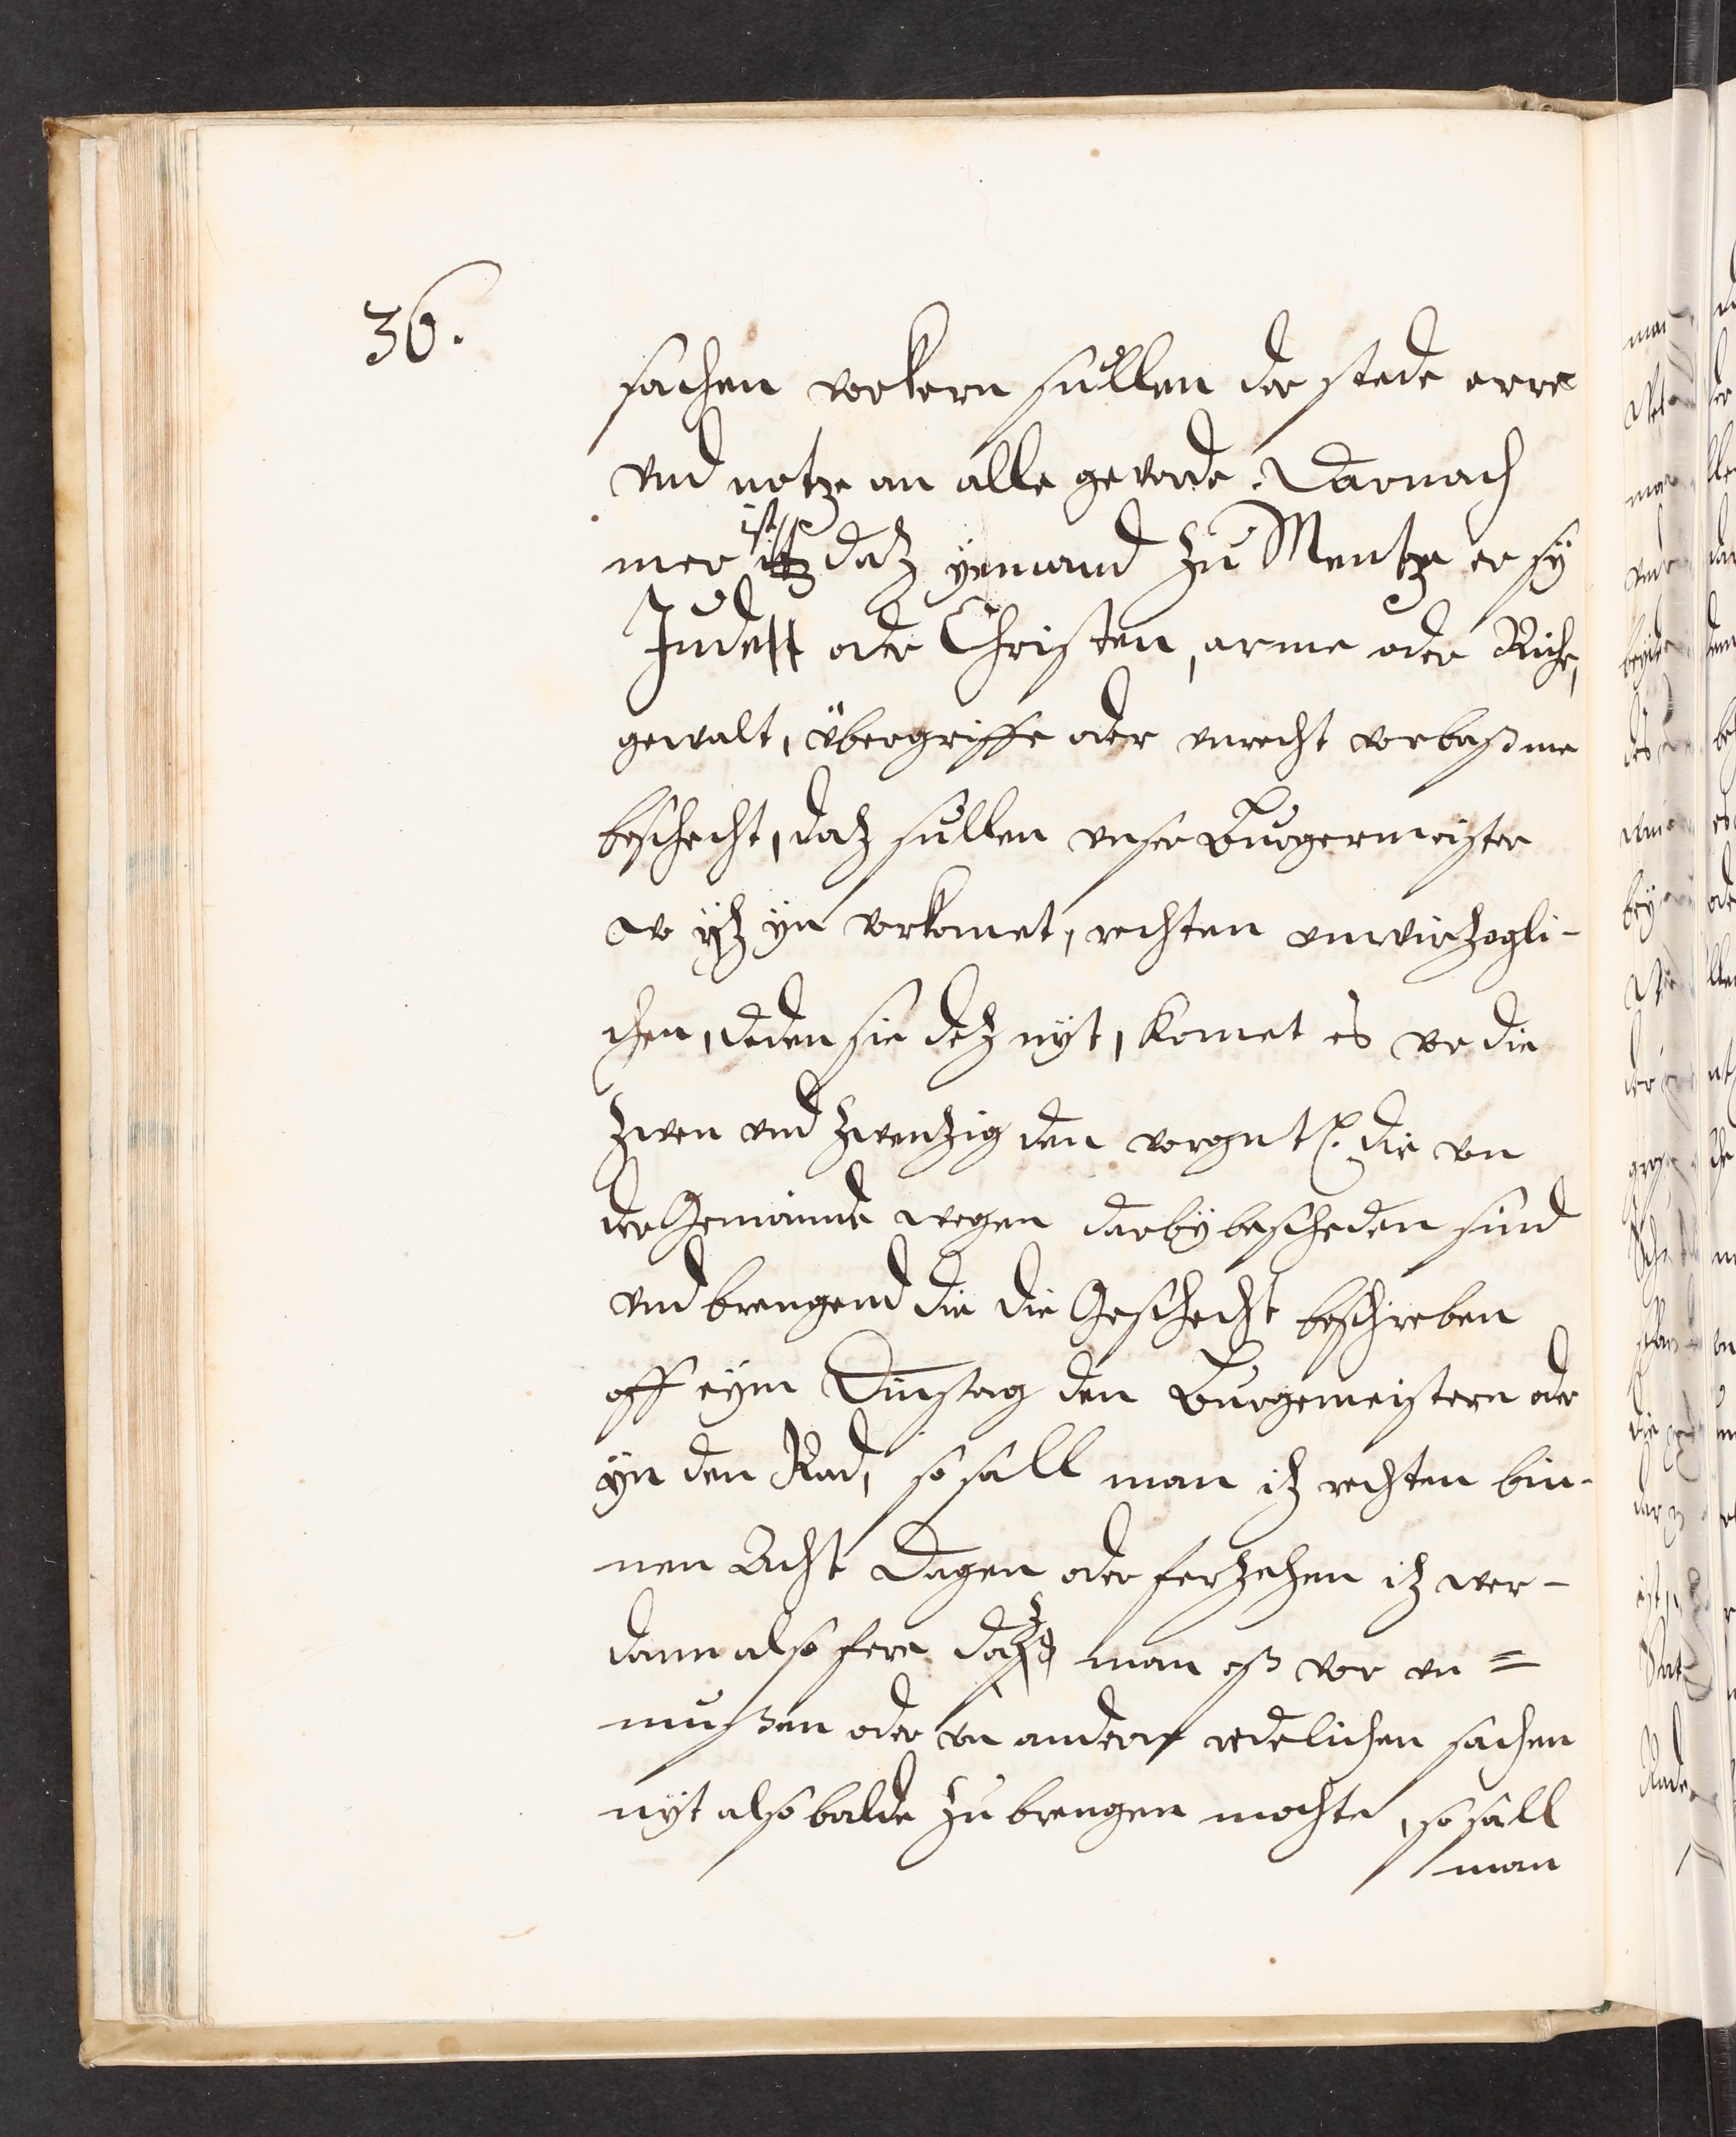 36.
sachen vorkern sullen der stede erre
vnd notze an alle geverde. Darnach
mer ist daz yemand zu Mentze er sÿ
Juden oder Christen, arme oder Riche,
gewalt, übergriffe oder vnrecht vorbaß me
beschecht, daz sullen vnser Burgermeister
ÿz ÿn vorkomet, rechten vnvirzogli-
chen, deden sie dez nÿt, komet es vor die
zwen vnd zwenzig den vorgnt. die von
der Gemeinde wegen darbÿ bescheden sind
vnd brengend die die Geschecht beschrieben
off eÿm Dinstag den Burgemeistern oder
ÿn den Rad, so sall man iz rechten bin-
nen Acht Dagen oder ferzehen iz wer-
dann also fere daz man eß vor vn=
mußen oder von andern redelichen sachen
nÿt also balde zu brengen mochte, so sall
man